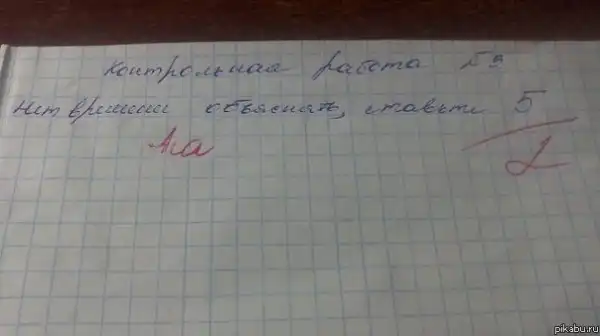 Контрольная работа №9
Нет времени объяснять, ставьте 5
Ага
2
pikabu.ru